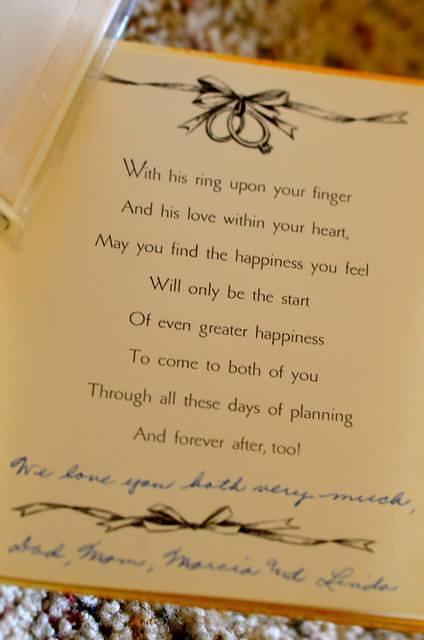 With his ring upon your finger
And his love within your heart,
May you find the happiness you feel
Will only be the start
Of even greater happiness
To come to both of you
Through all these days of planning
And forever after, too!
We love you both very much,
Dad, Mom, Marcia and Linda